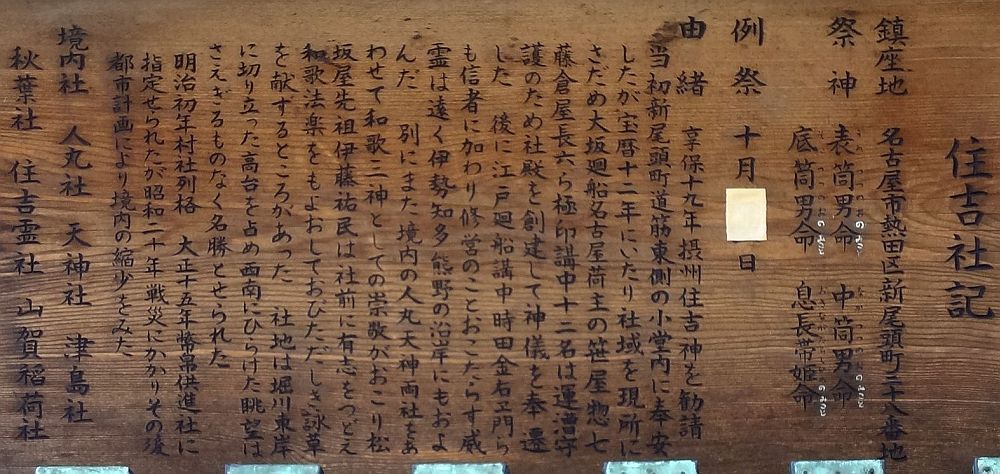 住吉社記
鎮座地 名古屋市熱田区新尾頭町二十八番地
祭神 表筒男命 中筒男命
底筒男命 息長帯姫命
例祭 十月 日
由緒 享保十九年 摂州住吉神を勧請
当初新尾頭町道筋東側の小堂内に奉安
したが宝暦十二年にいたり社域を現所に
さだめ大坂廻船名古屋荷主の笹屋惣七
藤倉屋長六ら極印講中十二名は運漕守
護のため社殿を創建して神儀を奉遷
した 後に江戸廻船講中時田金右エ門ら
も信者に加わり修営のことおこたらず威
霊は遠く伊勢知多熊野の沿岸にもおよ
んだ 別にまた境内の人丸天神両社をあ
わせて和歌二神としての崇敬がおこり松
坂屋先祖伊藤祐民は社前に有志をつどえ
和歌法楽をもよおしておびただしき詠草
を献ずるところがあった 社地は堀川東岸
に切り立った高台を占め西南にひらけた眺望は
さえぎるものなく名勝とせられた
明治初年村社列格 大正十五年幣帛供進社に
指定せられたが昭和二十年戦災にかかりその後
都市計画により境内の縮少をみた
境内社 人丸社 天神社 津島社
秋葉社 住吉霊社 山賀稲荷社